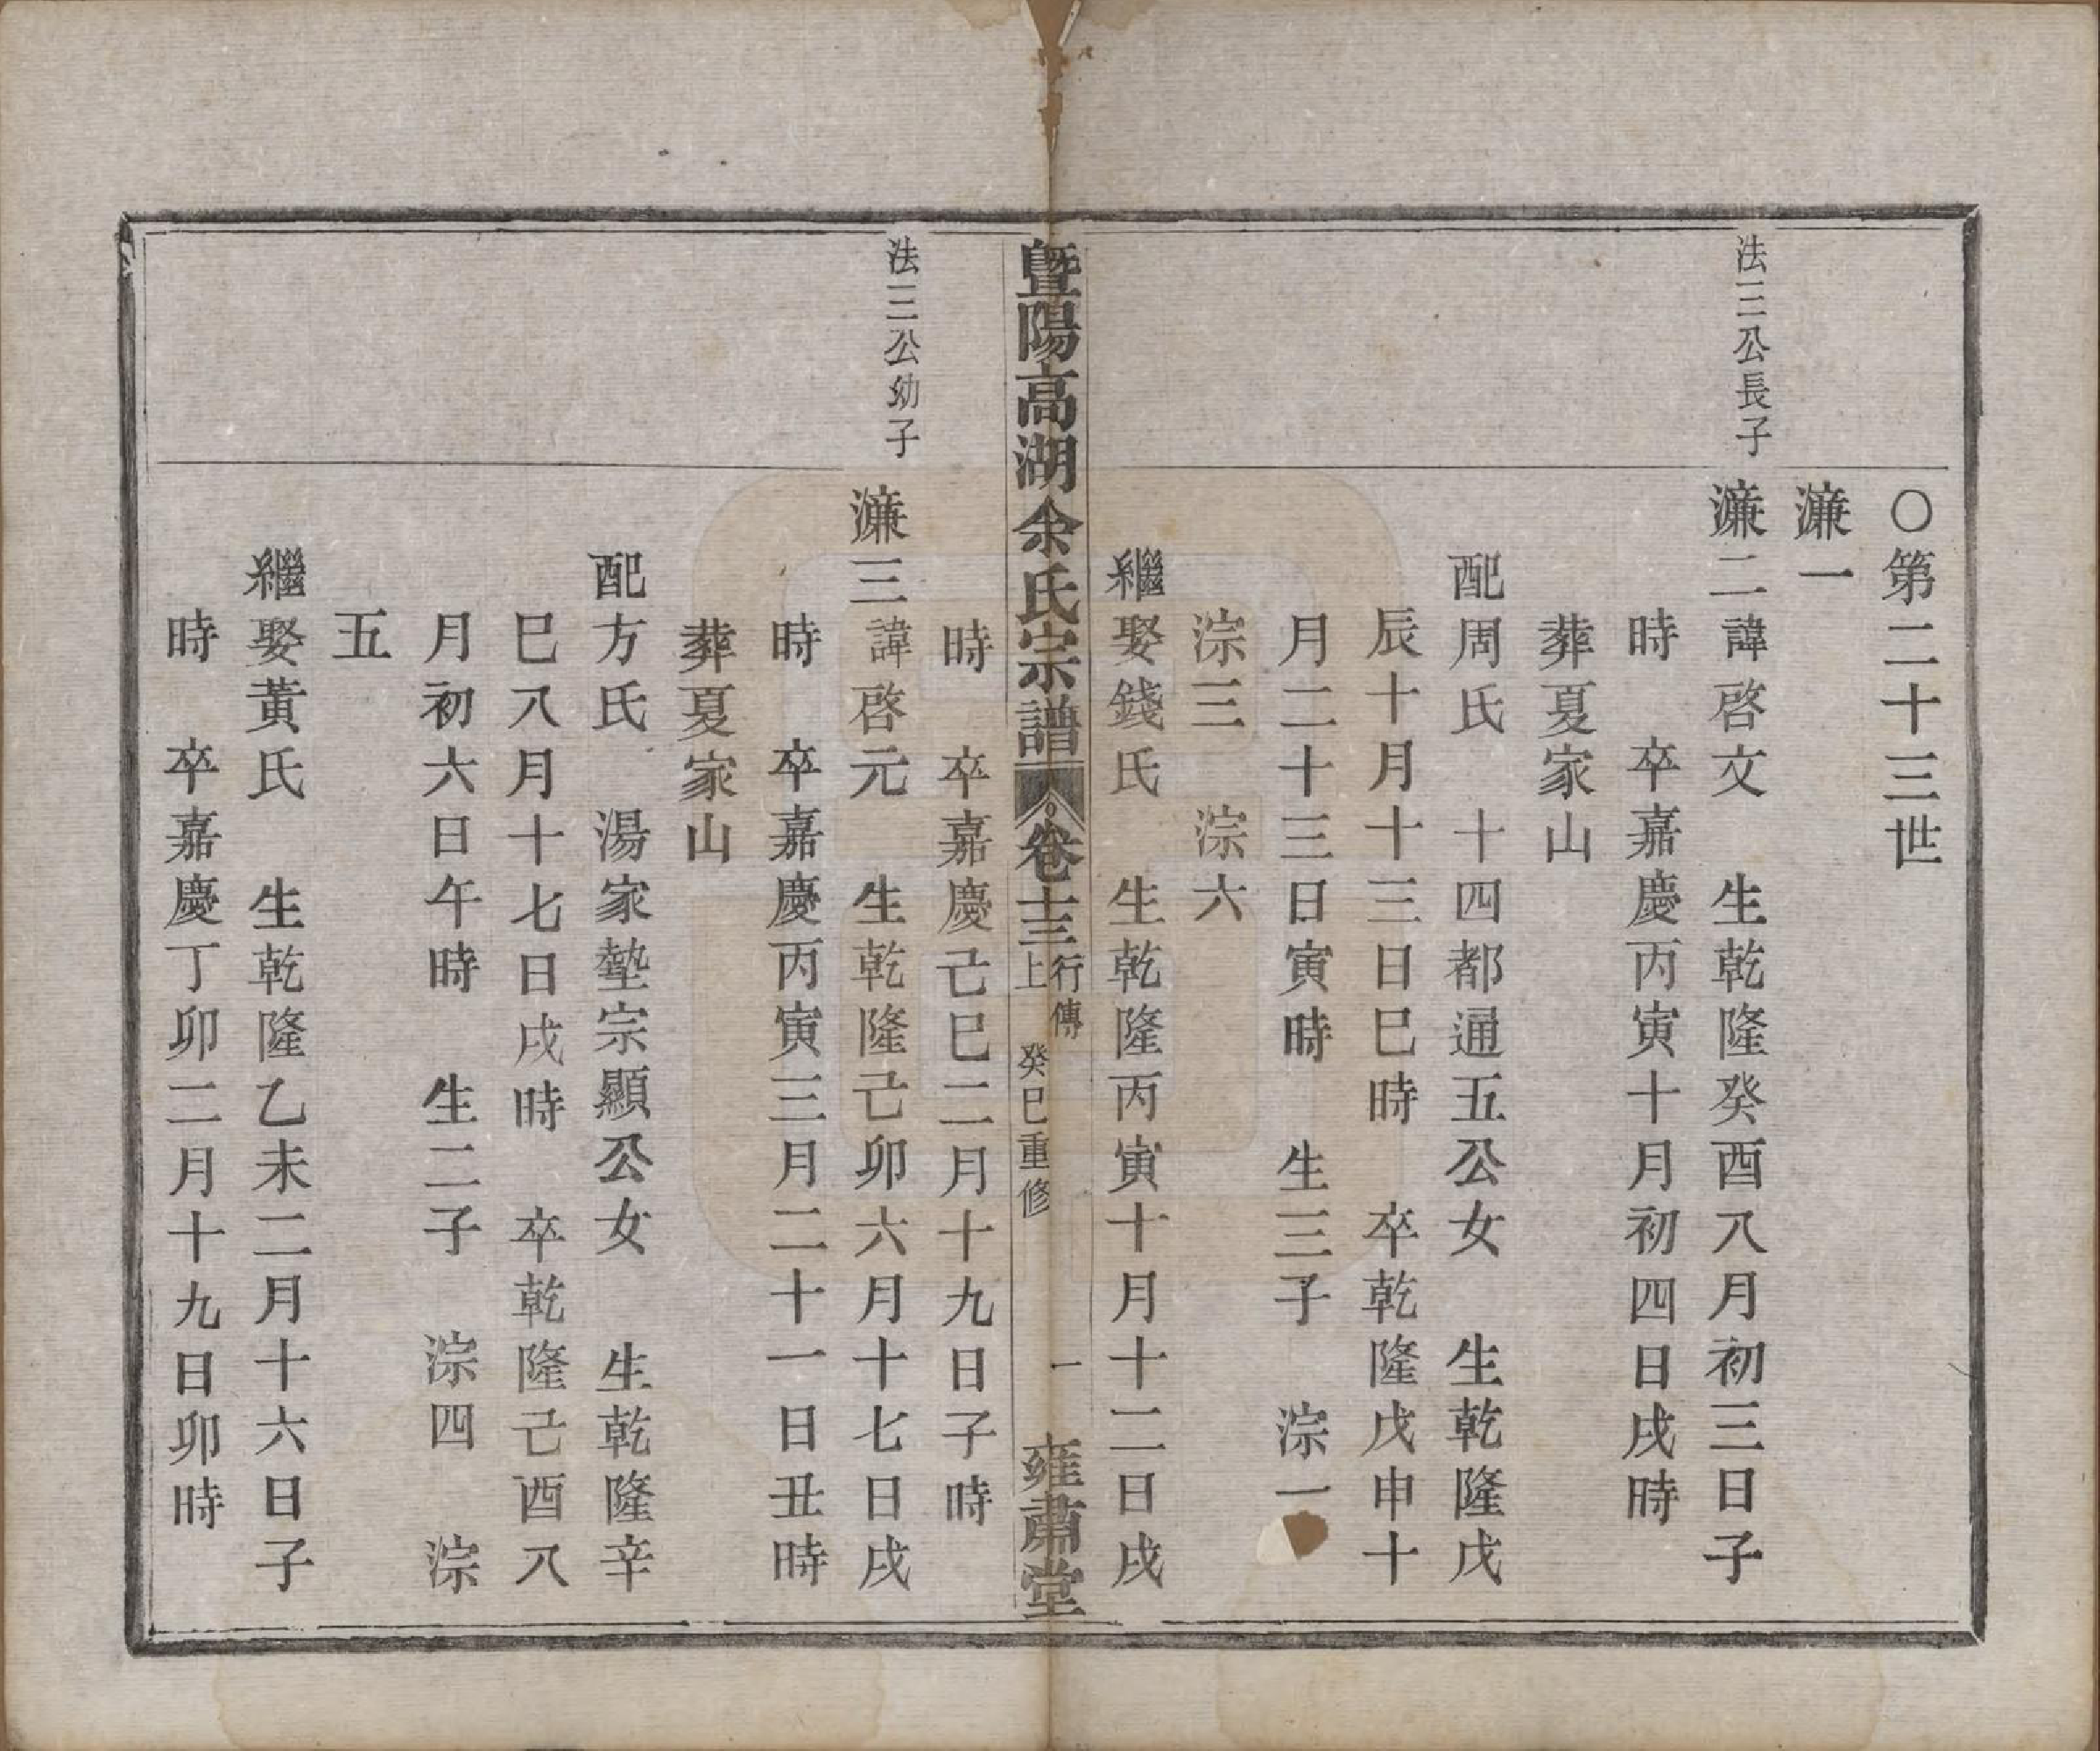 ○第二十三世
濂一
法三公長子
濂二諱啓文　生乾隆癸酉八月初三日子
時　卒嘉慶丙寅十月初四日戌時
葬夏家山
配周氏　十四都通五公女　生乾隆戊
辰十月十三日巳時　卒乾隆戊申十
月二十三日寅時　生三子　淙一
淙三　淙六
繼娶錢氏　生乾隆丙寅十月十二日戌
暨陽高湖余氏宗譜　卷十三上　行傳　癸巳重修　一　雍肅堂
時　卒嘉慶己巳二月十九日子時
法三公幼子
濂三諱啓元　生乾隆己卯六月十七日戌
時　卒嘉慶丙寅三月二十一日丑時
葬夏家山
配方氏　湯家墊宗顯公女　生乾隆辛
巳八月十七日戌時　卒乾隆己酉八
月初六日午時　生二子　淙四　淙
五
繼娶黃氏　生乾隆乙未二月十六日子
時　卒嘉慶丁卯二月十九日卯時